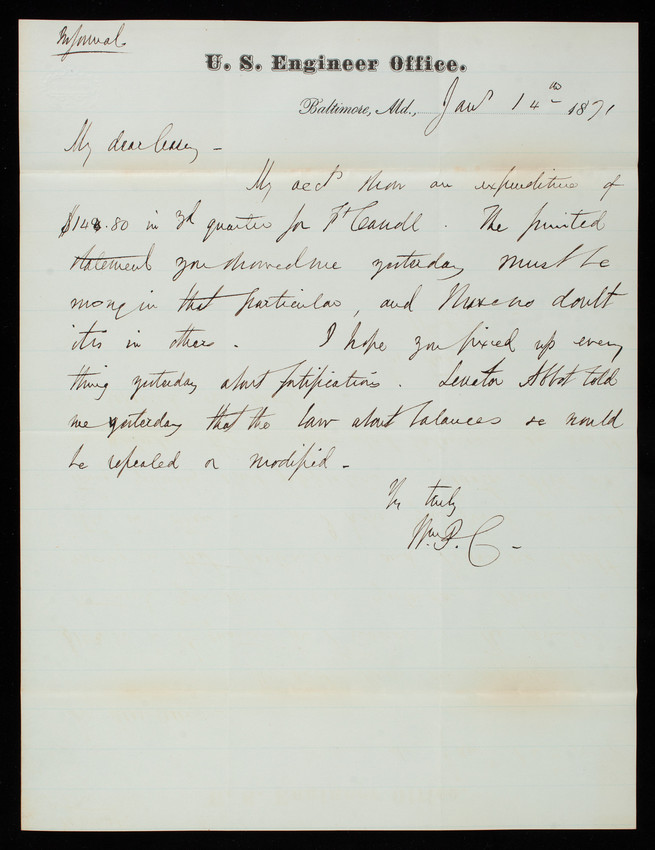 Informal
U. S. Engineer Office.
Baltimore, Md., Jany 14th 1871
My dear Casey -
My accts show an expenditure of
$148.80 in 3d quarter for Ft Carroll. The printed
statement you showed me yesterday must be
wrong in that particular, and I have no doubt
it is in others - I hope you fixed up every
thing yesterday about fortifications. Senator Abbot told
me yesterday that the law about balances &c would
be repealed or modified -
Yrs truly
Wm. P. C -